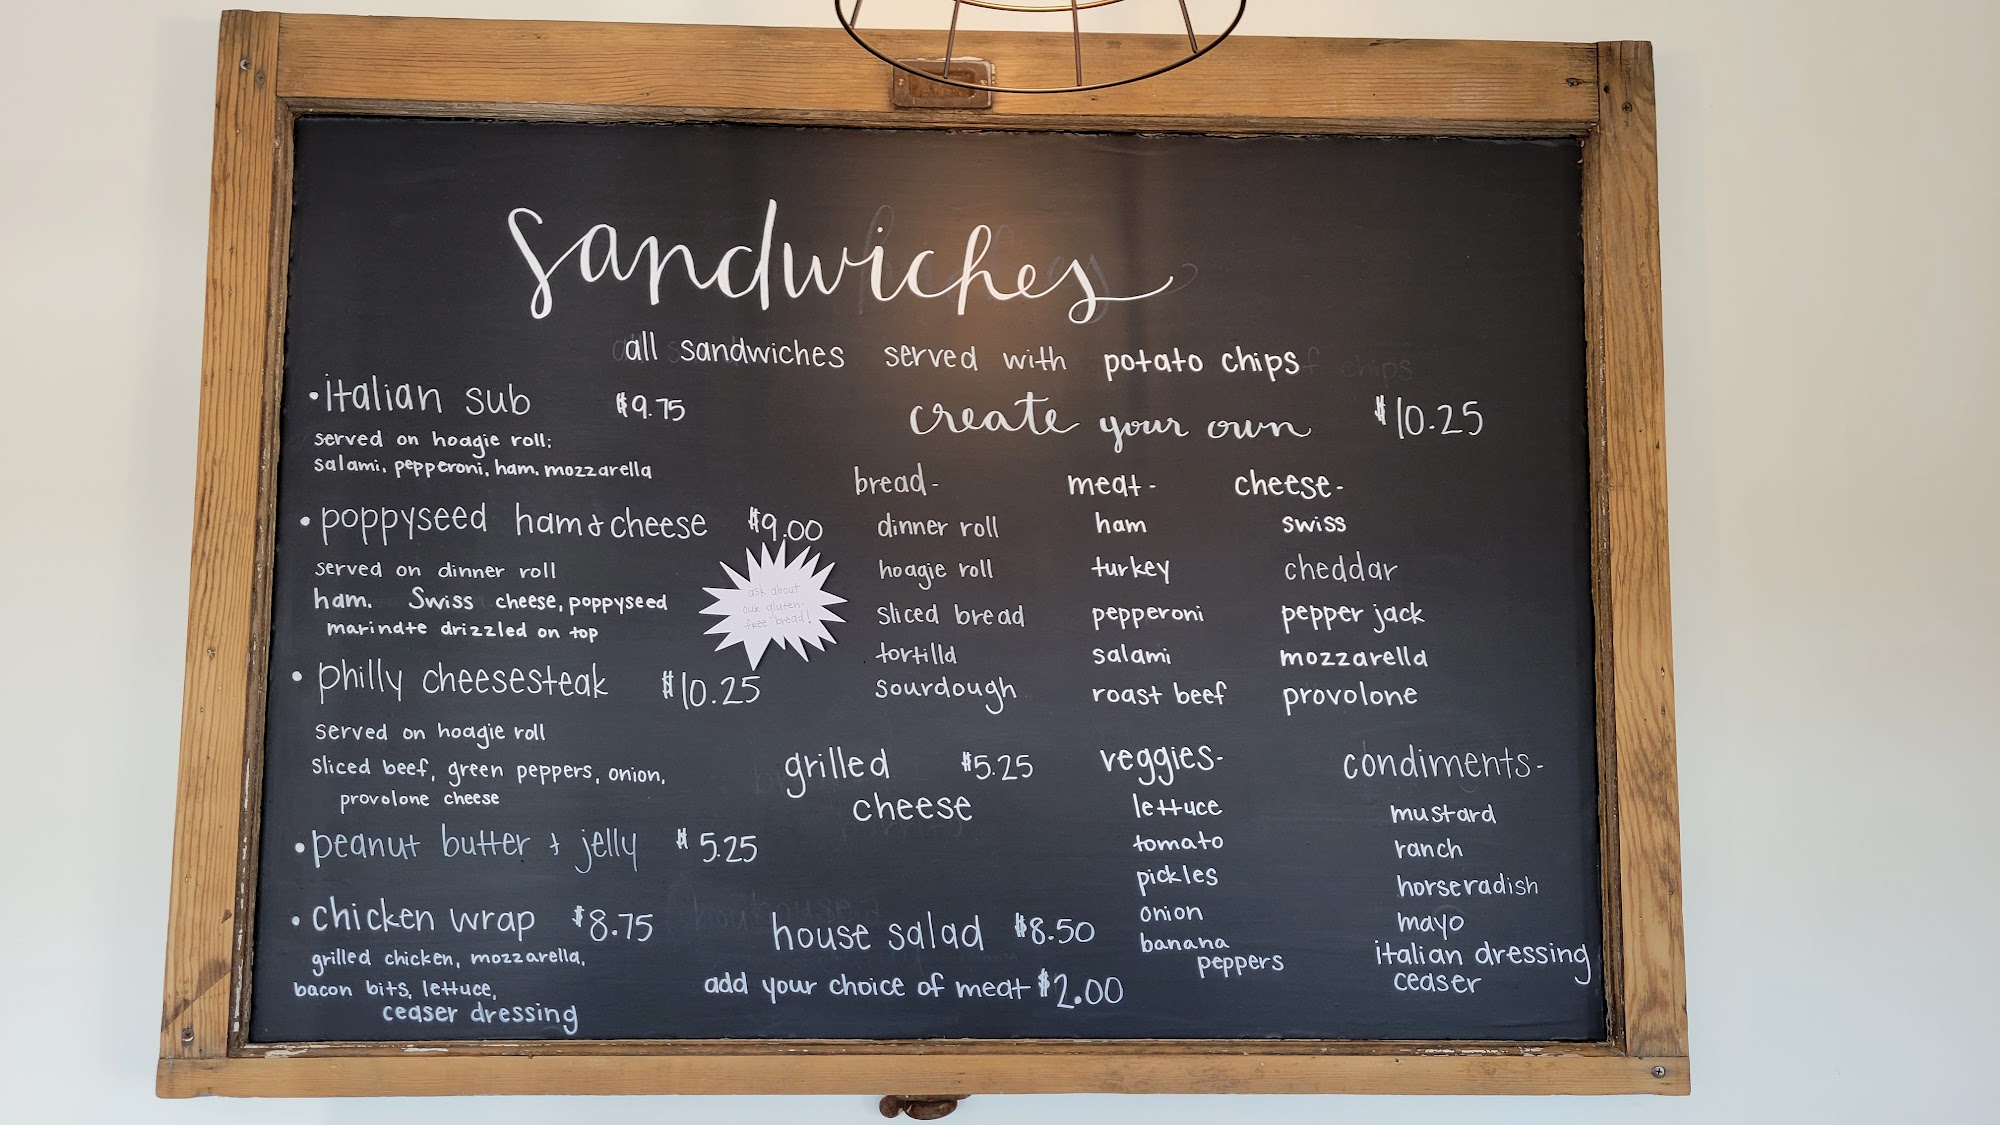 sandwiches
all sandwiches served with potato chips
• italian sub $9.75
served on hoagie roll;
salami, pepperoni, ham, mozzarella
• poppyseed ham & cheese $9.00
served on dinner roll
ham. Swiss cheese, poppyseed
marinate drizzled on top
ask about
our gluten-
free bread!
• philly cheesesteak $10.25
served on hoagie roll
sliced beef, green peppers, onion,
provolone cheese
• peanut butter & jelly $5.25
• chicken wrap $8.75
grilled chicken, mozzarella,
bacon bits, lettuce,
ceaser dressing
create your own $10.25
bread-
dinner roll
hoagie roll
sliced bread
tortilla
sourdough
meat-
ham
turkey
pepperoni
salami
roast beef
cheese-
swiss
cheddar
pepper jack
mozzarella
provolone
grilled $5.25
cheese
house salad $8.50
add your choice of meat $2.00
veggies-
lettuce
tomato
pickles
onion
banana
peppers
condiments-
mustard
ranch
horseradish
mayo
italian dressing
ceaser